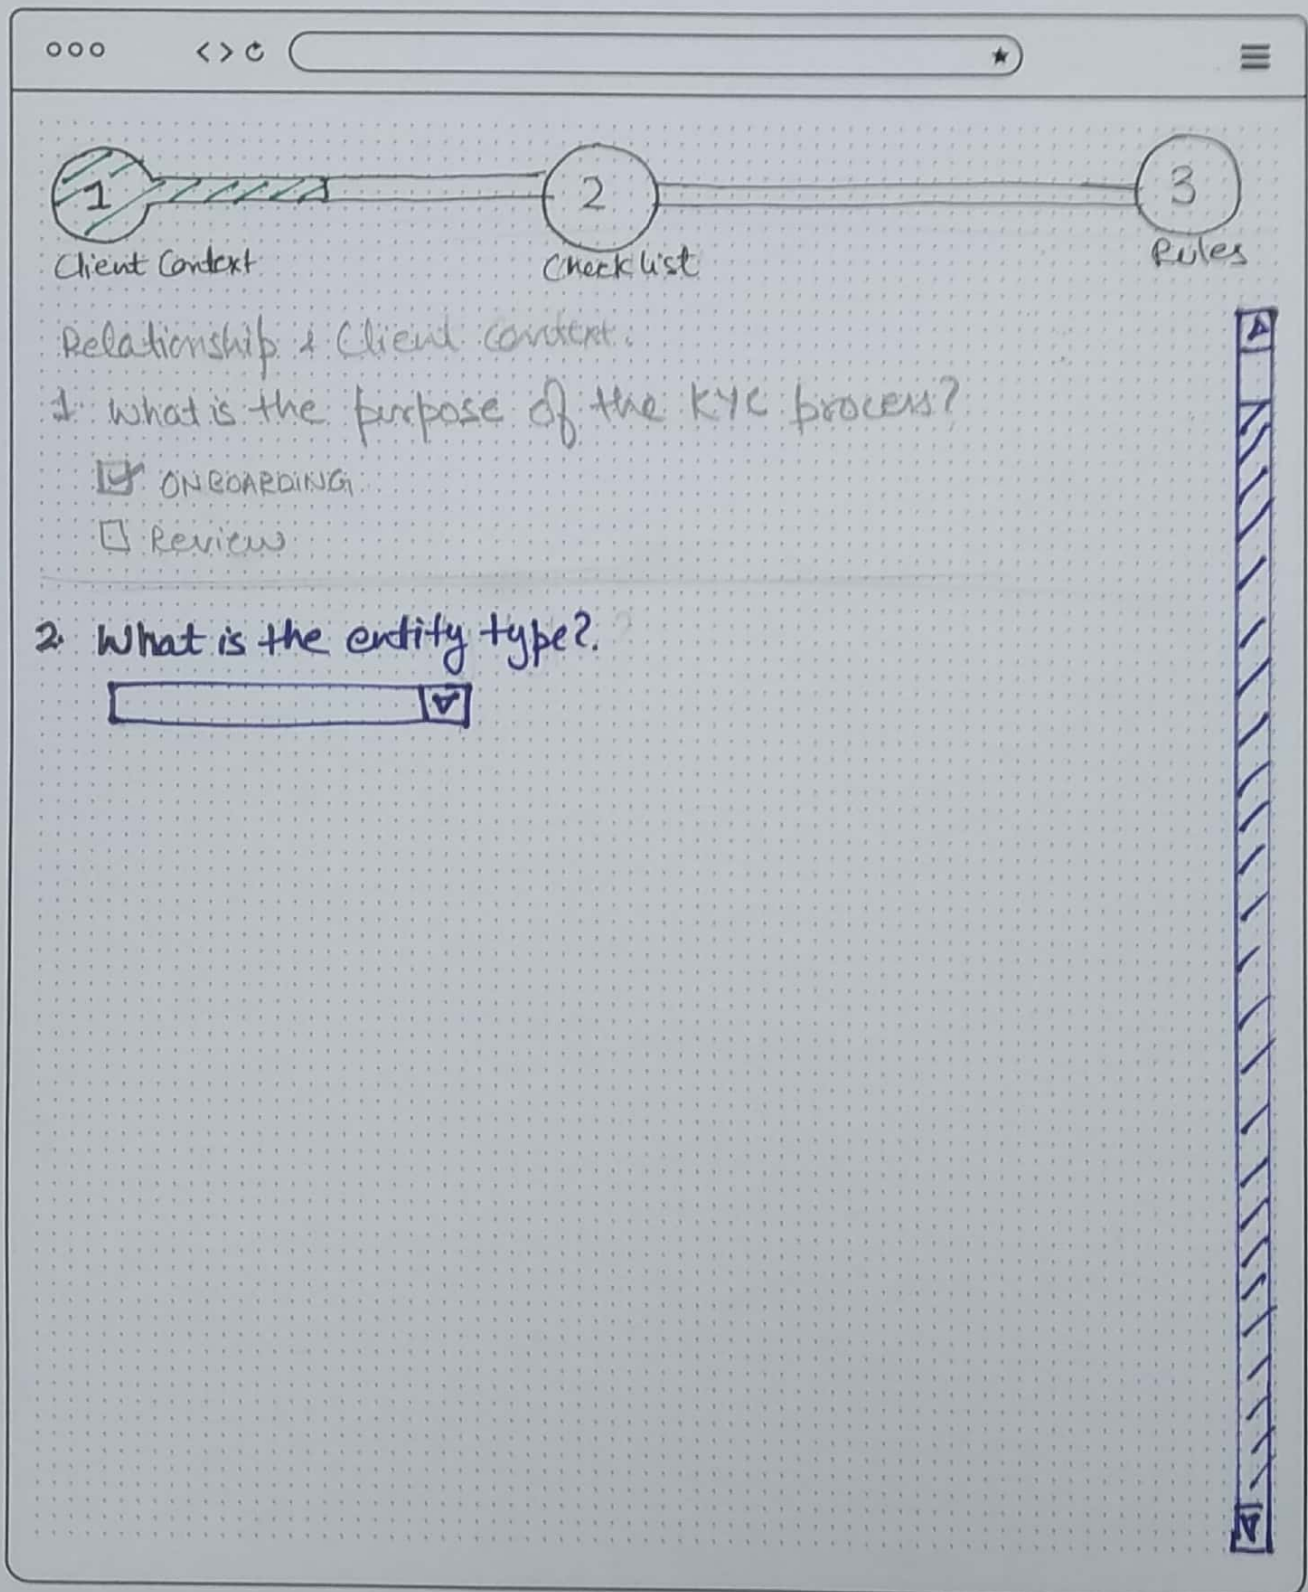 1
2
3
Client Context
Checklist
Rules
Relationship & Client context.
1. What is the purpose of the KYC process?
ONBOARDING
Review
2. What is the entity type?.